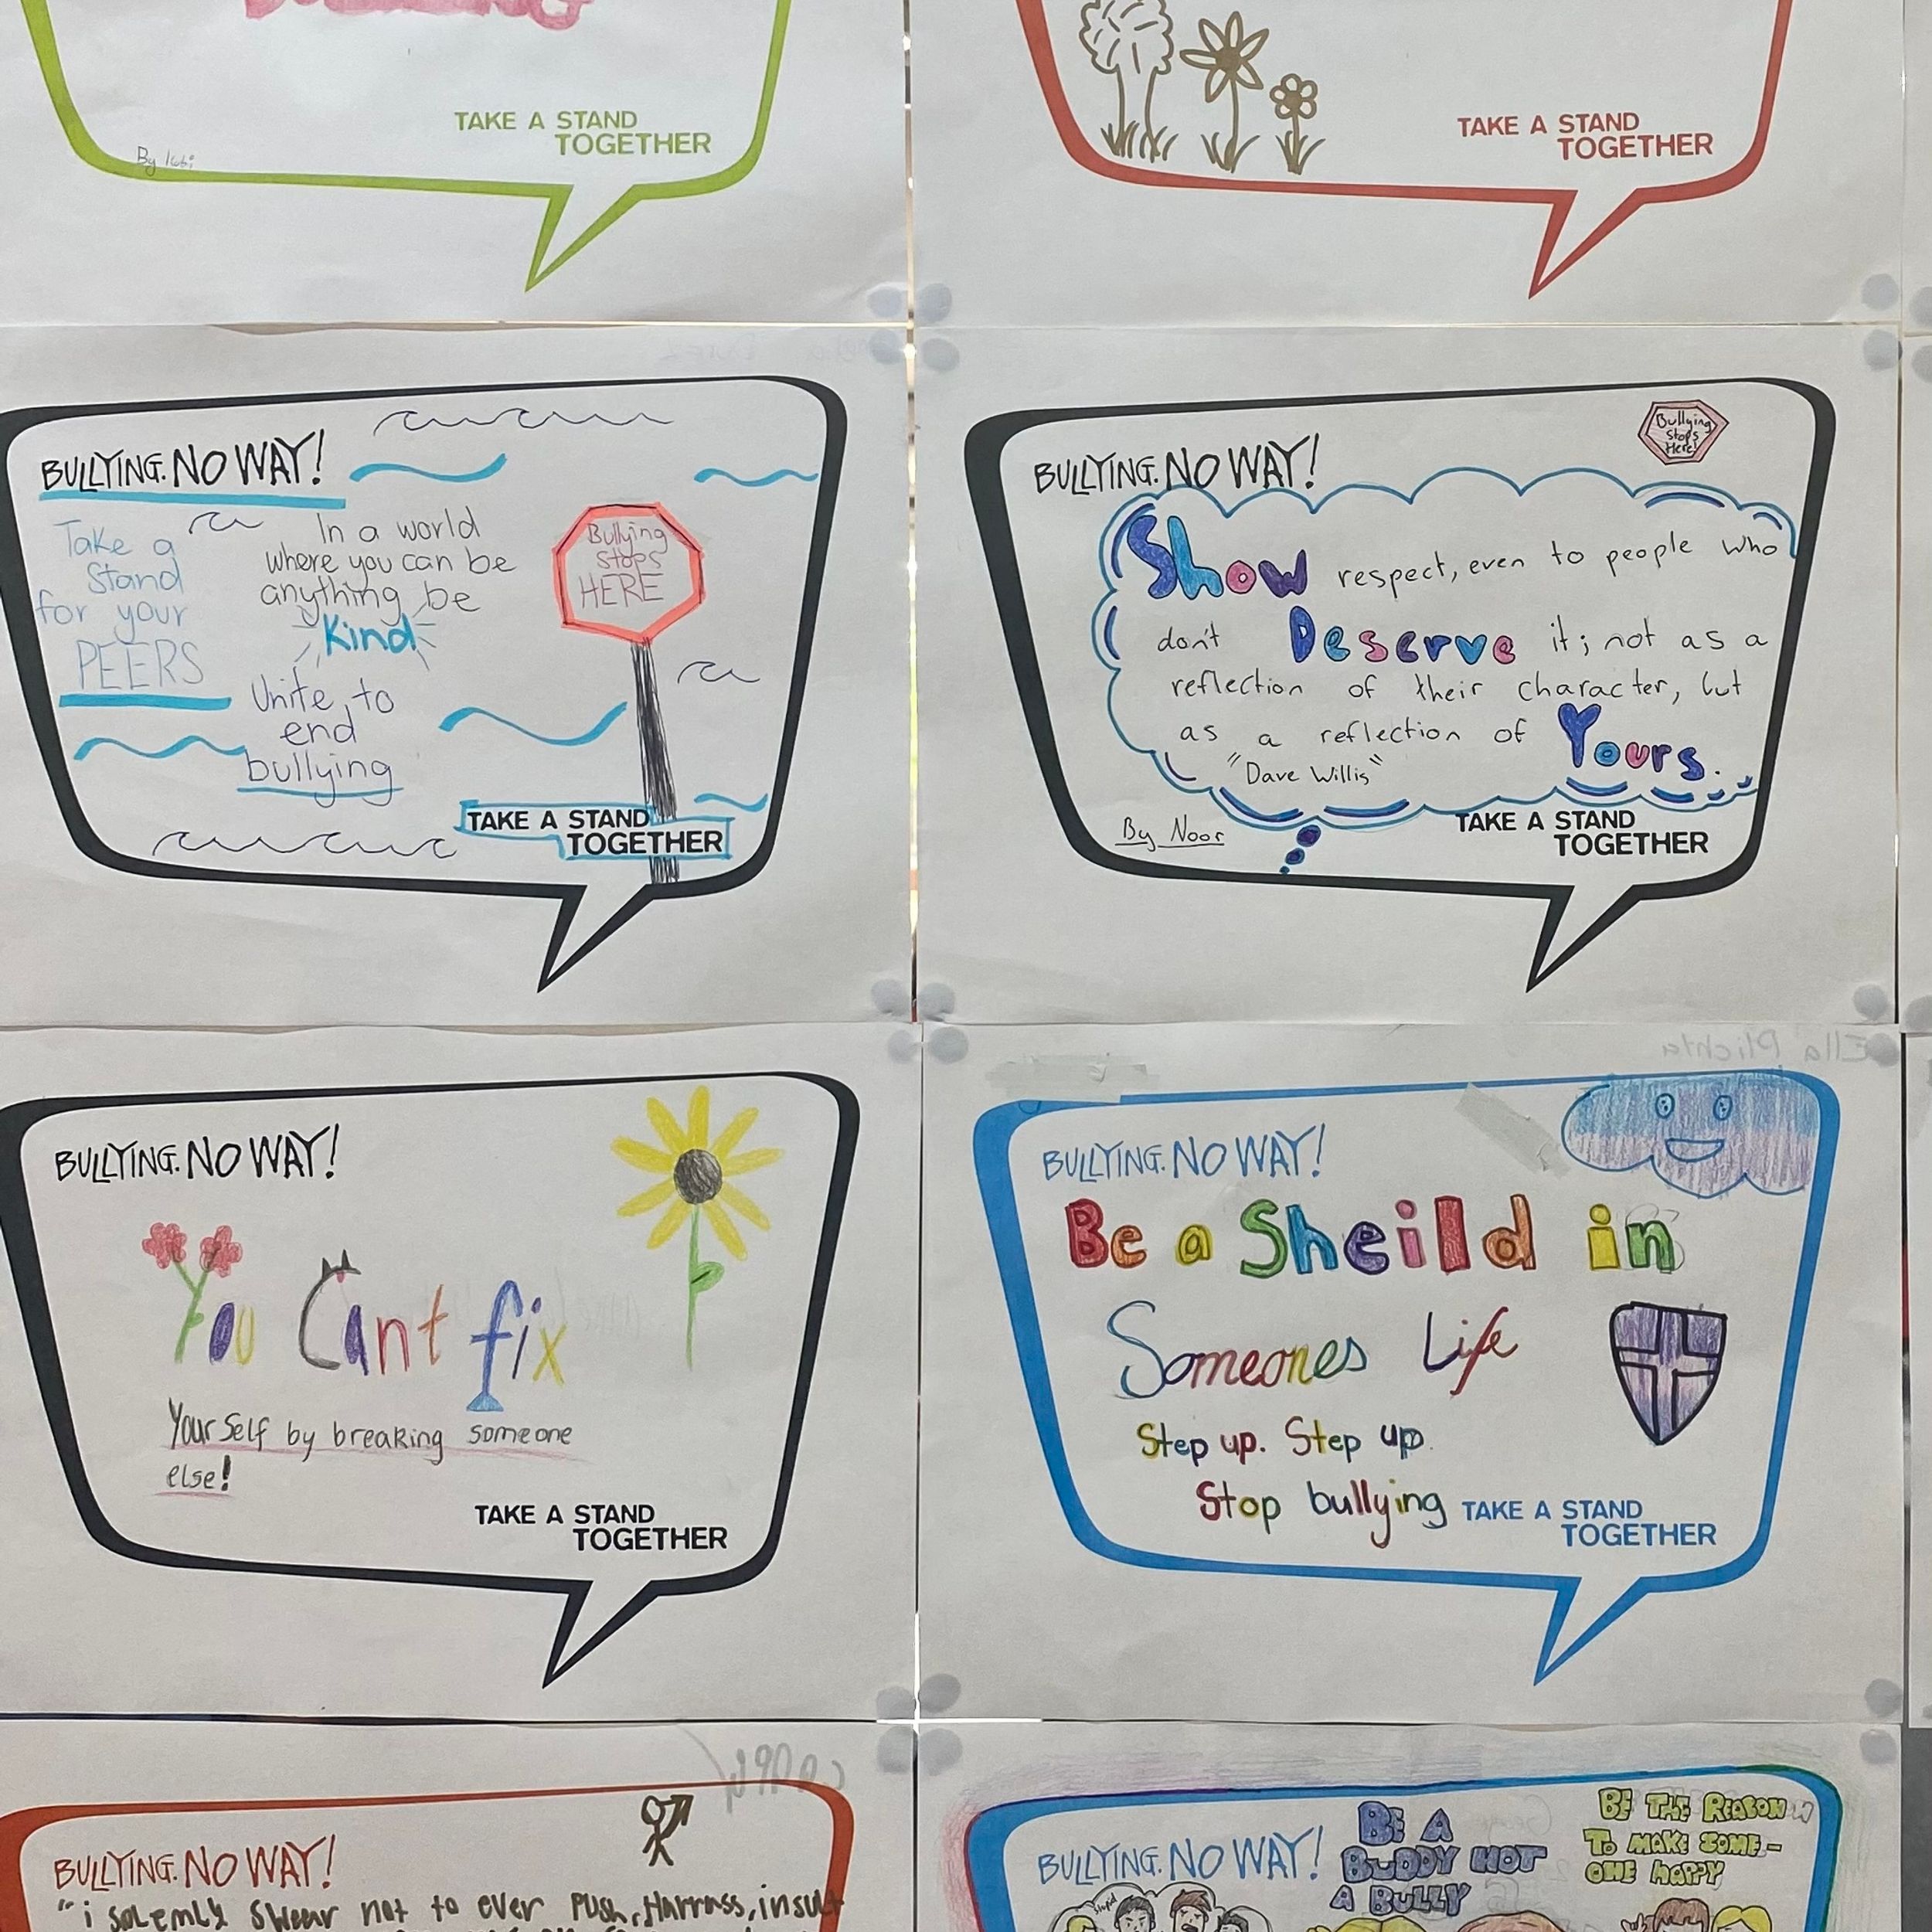 TAKE A STAND
TOGETHER
By
TAKE A STAND
TOGETHER
BULLYING. NO WAY!
Take a
Stand
for your
PEERS
In a world
where you can be
anything be
Kind
Unite to
end
bullying
Bullying
stops
HERE
TAKE A STAND
TOGETHER
BULLYING. NO WAY!
Bullying
stops
Here!
Show respect, even to people who
don't Deserve it; not as a
reflection of their character, but
as a reflection of Yours.
"Dave Willis"
By Noor
TAKE A STAND
TOGETHER
BULLYING. NO WAY!
You Cant fix
Yourself by breaking someone
else!
TAKE A STAND
TOGETHER
Ella Plichta
BULLYING. NO WAY!
Be a Sheild in
Someones Life
Step up. Step up.
Stop bullying
TAKE A STAND
TOGETHER
BULLYING. NO WAY!
"i solemly swear not to ever Push, Harrass, insult
BULLYING. NO WAY!
BE A
BUDDY NOT
A BULLY
BE THE REASON
TO MAKE SOME-
ONE HAPPY
stupid